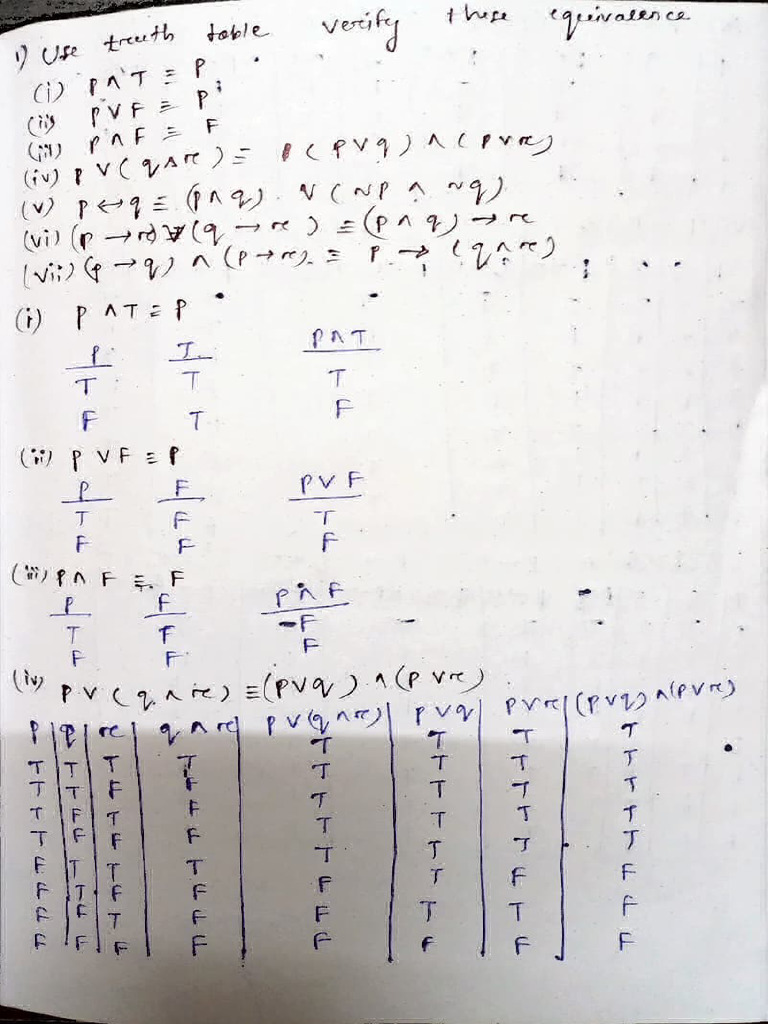 1) Use treuth table verify these equivalence
(i) P ∧ T ≡ P
(ii) P ∨ F ≡ P
(iii) P ∧ F ≡ F
(iv) P ∨ (q ∧ r) ≡ (P ∨ q) ∧ (P ∨ r)
(v) P ↔ q ≡ (P ∧ q) ∨ (~P ∧ ~q)
(vi) (P → r) ∨ (q → r) ≡ (P ∧ q) → r
(vii) (P → q) ∧ (P → r) ≡ P → (q ∧ r)
(i) P ∧ T ≡ P
P T P ∧ T
T T T
F T F
(ii) P ∨ F ≡ P
P F P ∨ F
T F T
F F F
(iii) P ∧ F ≡ F
P F P ∧ F
T F F
F F F
(iv) P ∨ (q ∧ r) ≡ (P ∨ q) ∧ (P ∨ r)
P q r q ∧ r P ∨ (q ∧ r) P ∨ q P ∨ r (P ∨ q) ∧ (P ∨ r)
T T T T T T T T
T T F F T T T T
T F T F T T T T
T F F F T T T T
F T T T T T T T
F T F F F T F F
F F T F F T T F
F F F F F F F F